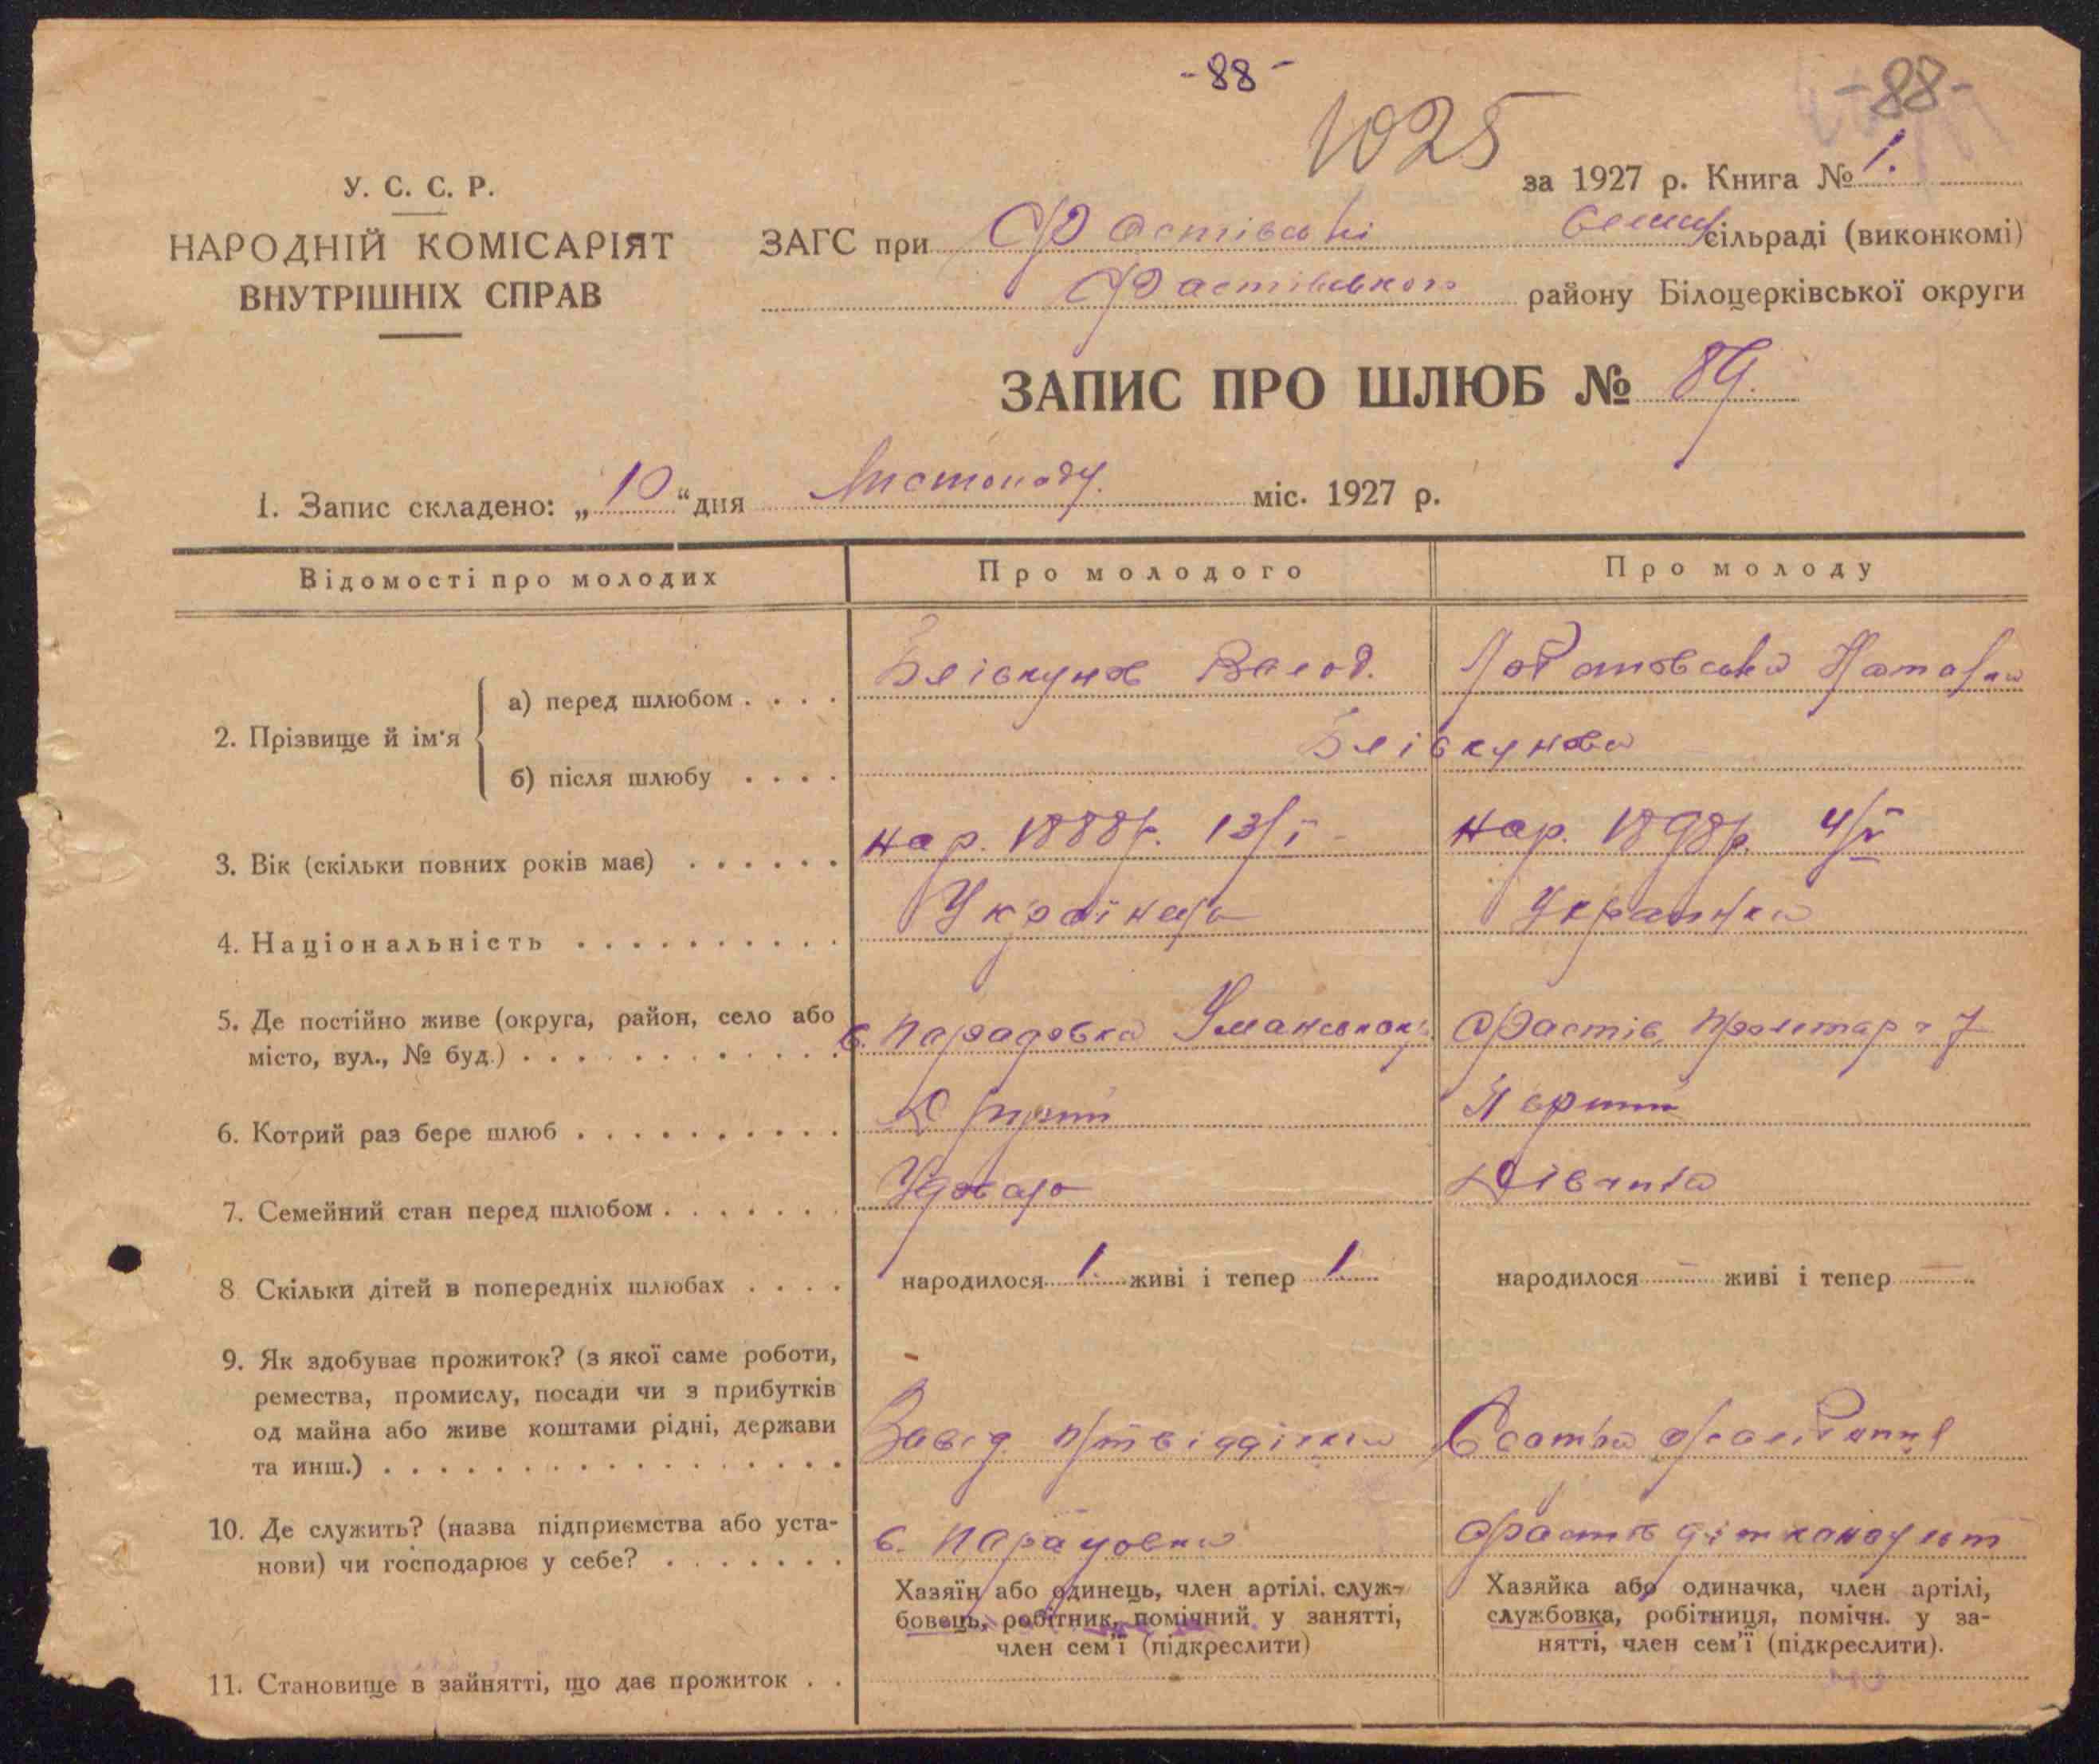 -88-
-88-
1025
за 1927 р. Книга № 1.
У. С. С. Р.
НАРОДНІЙ КОМІСАРІЯТ
ВНУТРІШНІХ СПРАВ
ЗАГС при Фастівські сільраді (виконкомі)
Фастівського району Білоцерківської округи
ЗАПИС ПРО ШЛЮБ № 89.
1. Запис складено: „10“ дня Листопаду. міс. 1927 р.
Відомості про молодих
Про молодого
Про молоду
2. Прізвище й ім'я
а) перед шлюбом . . . .
Волод.
б) після шлюбу . . . .
3. Вік (скільки повних років має) . . . . . .
нар. 1888р. 13/I
нар. 1898р. 4/V
4. Національність . . . . . . . . . .
Українець
Українка
5. Де постійно живе (округа, район, село або
місто, вул., № буд.) . . . . . . . . . . . .
с. Уманської
Фастів, Пролетар. 7
6. Котрий раз бере шлюб . . . . . . . . . .
Другий
Перший
7. Семейний стан перед шлюбом . . . . . . .
Удовець
Дівчина
8 Скільки дітей в попередніх шлюбах . . . .
народилося 1. живі і тепер 1
народилося - живі і тепер -
9. Як здобуває прожиток? (з якої саме роботи,
ремества, промислу, посади чи з прибутків
од майна або живе коштами рідні, держави
та инш.) . . . . . . . . . . . . . . . . .
Завід.
Сестра
10. Де служить? (назва підприємства або уста-
нови) чи господарює у себе? . . . . . . .
с.
Фастів
Хазяїн або одинець, член артілі. служ-
бовець, робітник, помічний у занятті,
член сем'ї (підкреслити)
Хазяйка або одиначка, член артілі,
службовка, робітниця, помічн. у за-
нятті, член сем'ї (підкреслити).
11. Становище в зайнятті, що дає прожиток . .